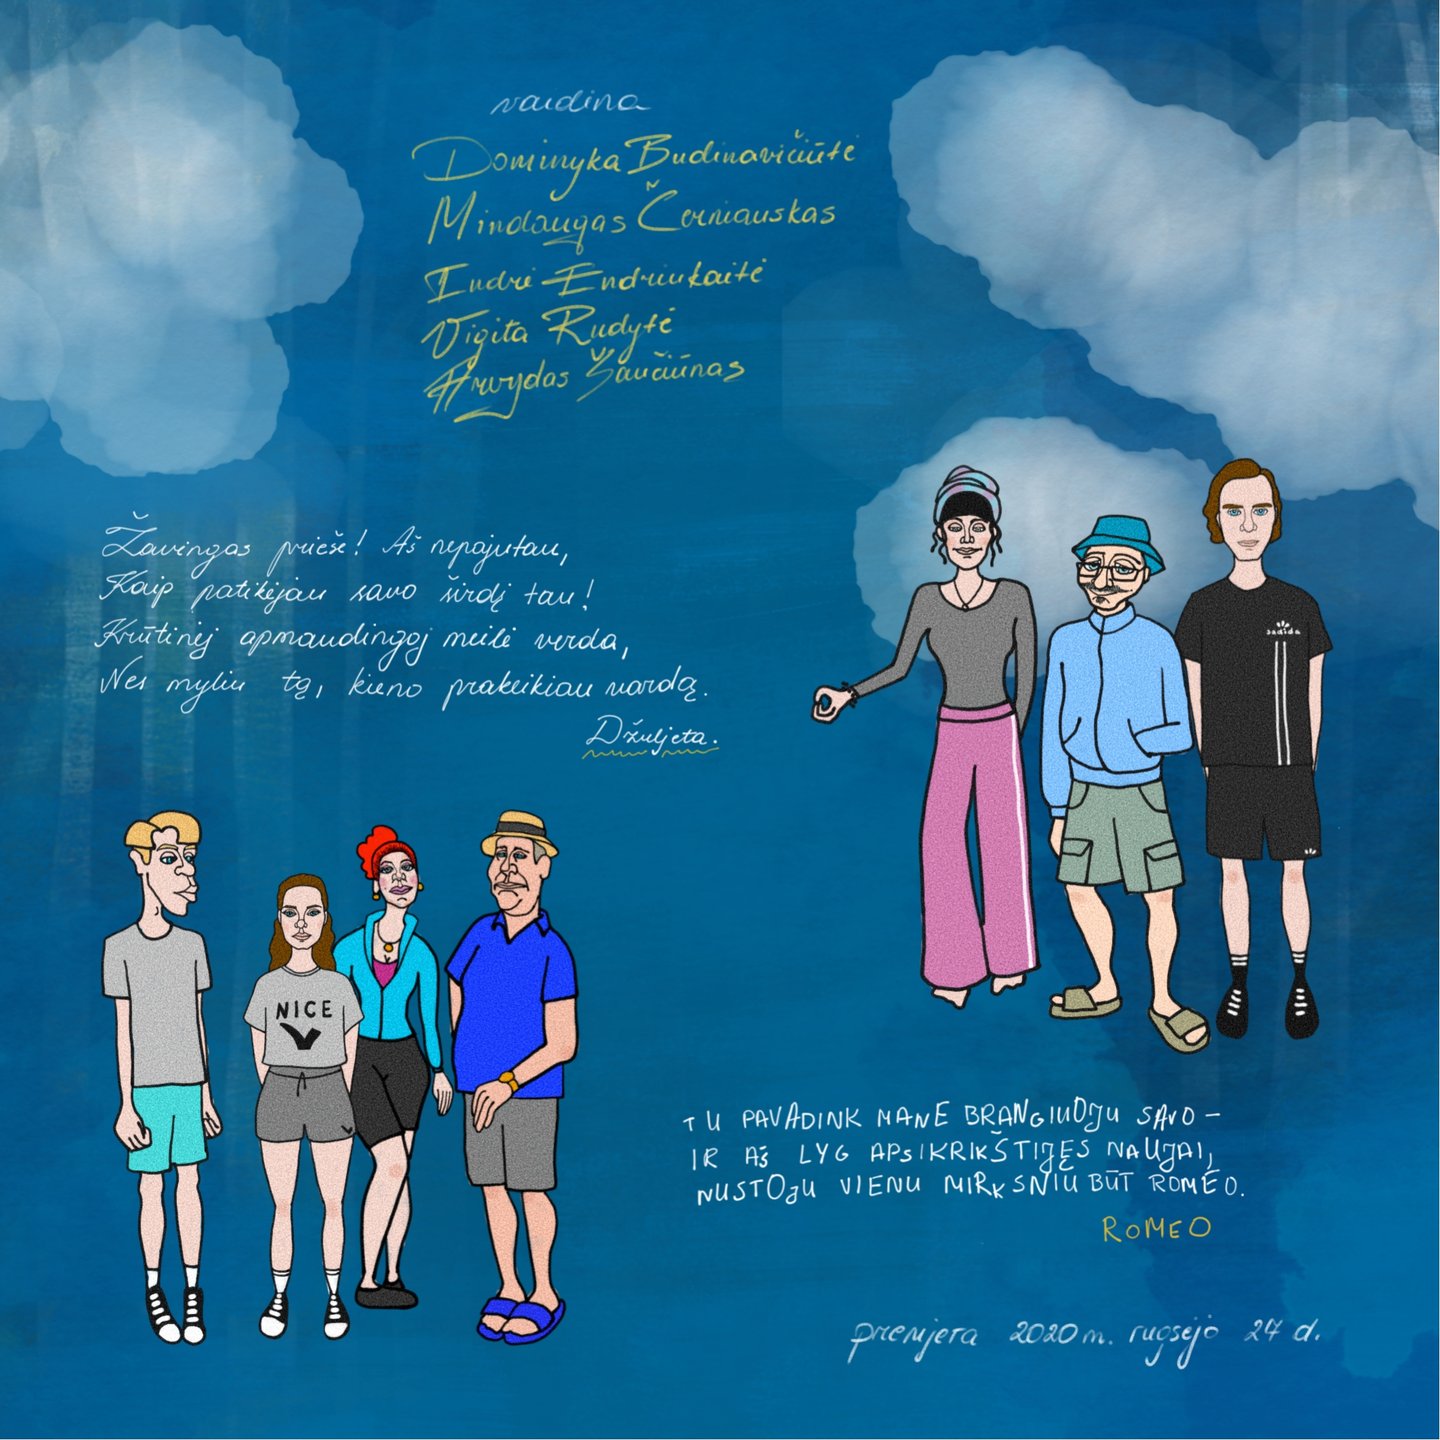 vaidina
Dominyka Budinavičiūtė
Mindaugas Černiauskas
Indrė Endriukaitė
Vigita Rudytė
Arvydas Šaučiūnas
Žavingas prieše! Aš nepajutau,
Kaip patikėjau savo širdį tau!
Krūtinėj apmaudingoj meilė verda,
Nes myliu tą, kieno prakeikiau vardą.
Džuljeta.
sadida
NICE
TU PAVADINK MANE BRANGIUOJU SAVO –
IR AŠ LYG APSIKRIKŠTIJĘS NAUJAI,
NUSTOJU VIENU MIRKSNIU BŪT ROMEO.
ROMEO
premjera 2020 m. rugsėjo 24 d.